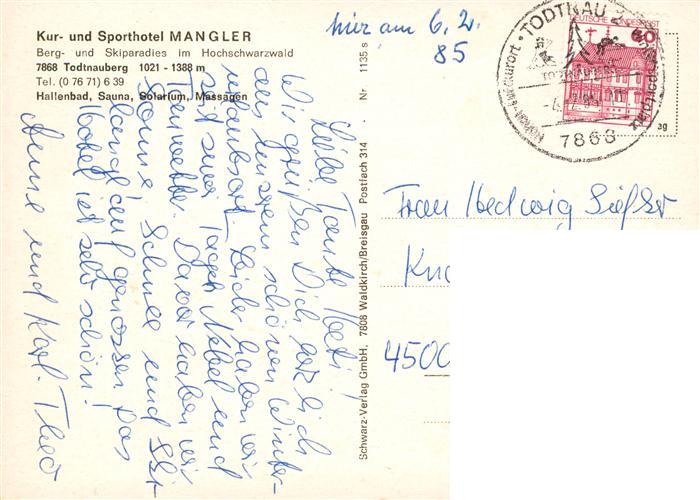 Kur- und Sporthotel MANGLER
Berg- und Skiparadies im Hochschwarzwald
7868 Todtnauberg 1021 - 1388 m
Tel. (0 76 71) 6 39
Hallenbad, Sauna, Solarium, Massagen
hier am 6.2.
85
Liebe Tante Hedi!
Wir grüßen Dich herzlich
aus unserem schönen Winter-
urlaubsort. Leider haben wir
seit zwei Tagen Nebel und
Tauwetter. Davor haben wir
Sonne, Schnee und Ski-
langlauf genossen. Das
Hotel ist sehr schön.
Anne und Karl-Theo
Schwarz-Verlag GmbH, 7808 Waldkirch/Breisgau Postfach 314 Nr 1135 s
TODTNAU
7868
DEUTSCHE BUNDESPOST
60
39
Frau Hedwig
4500